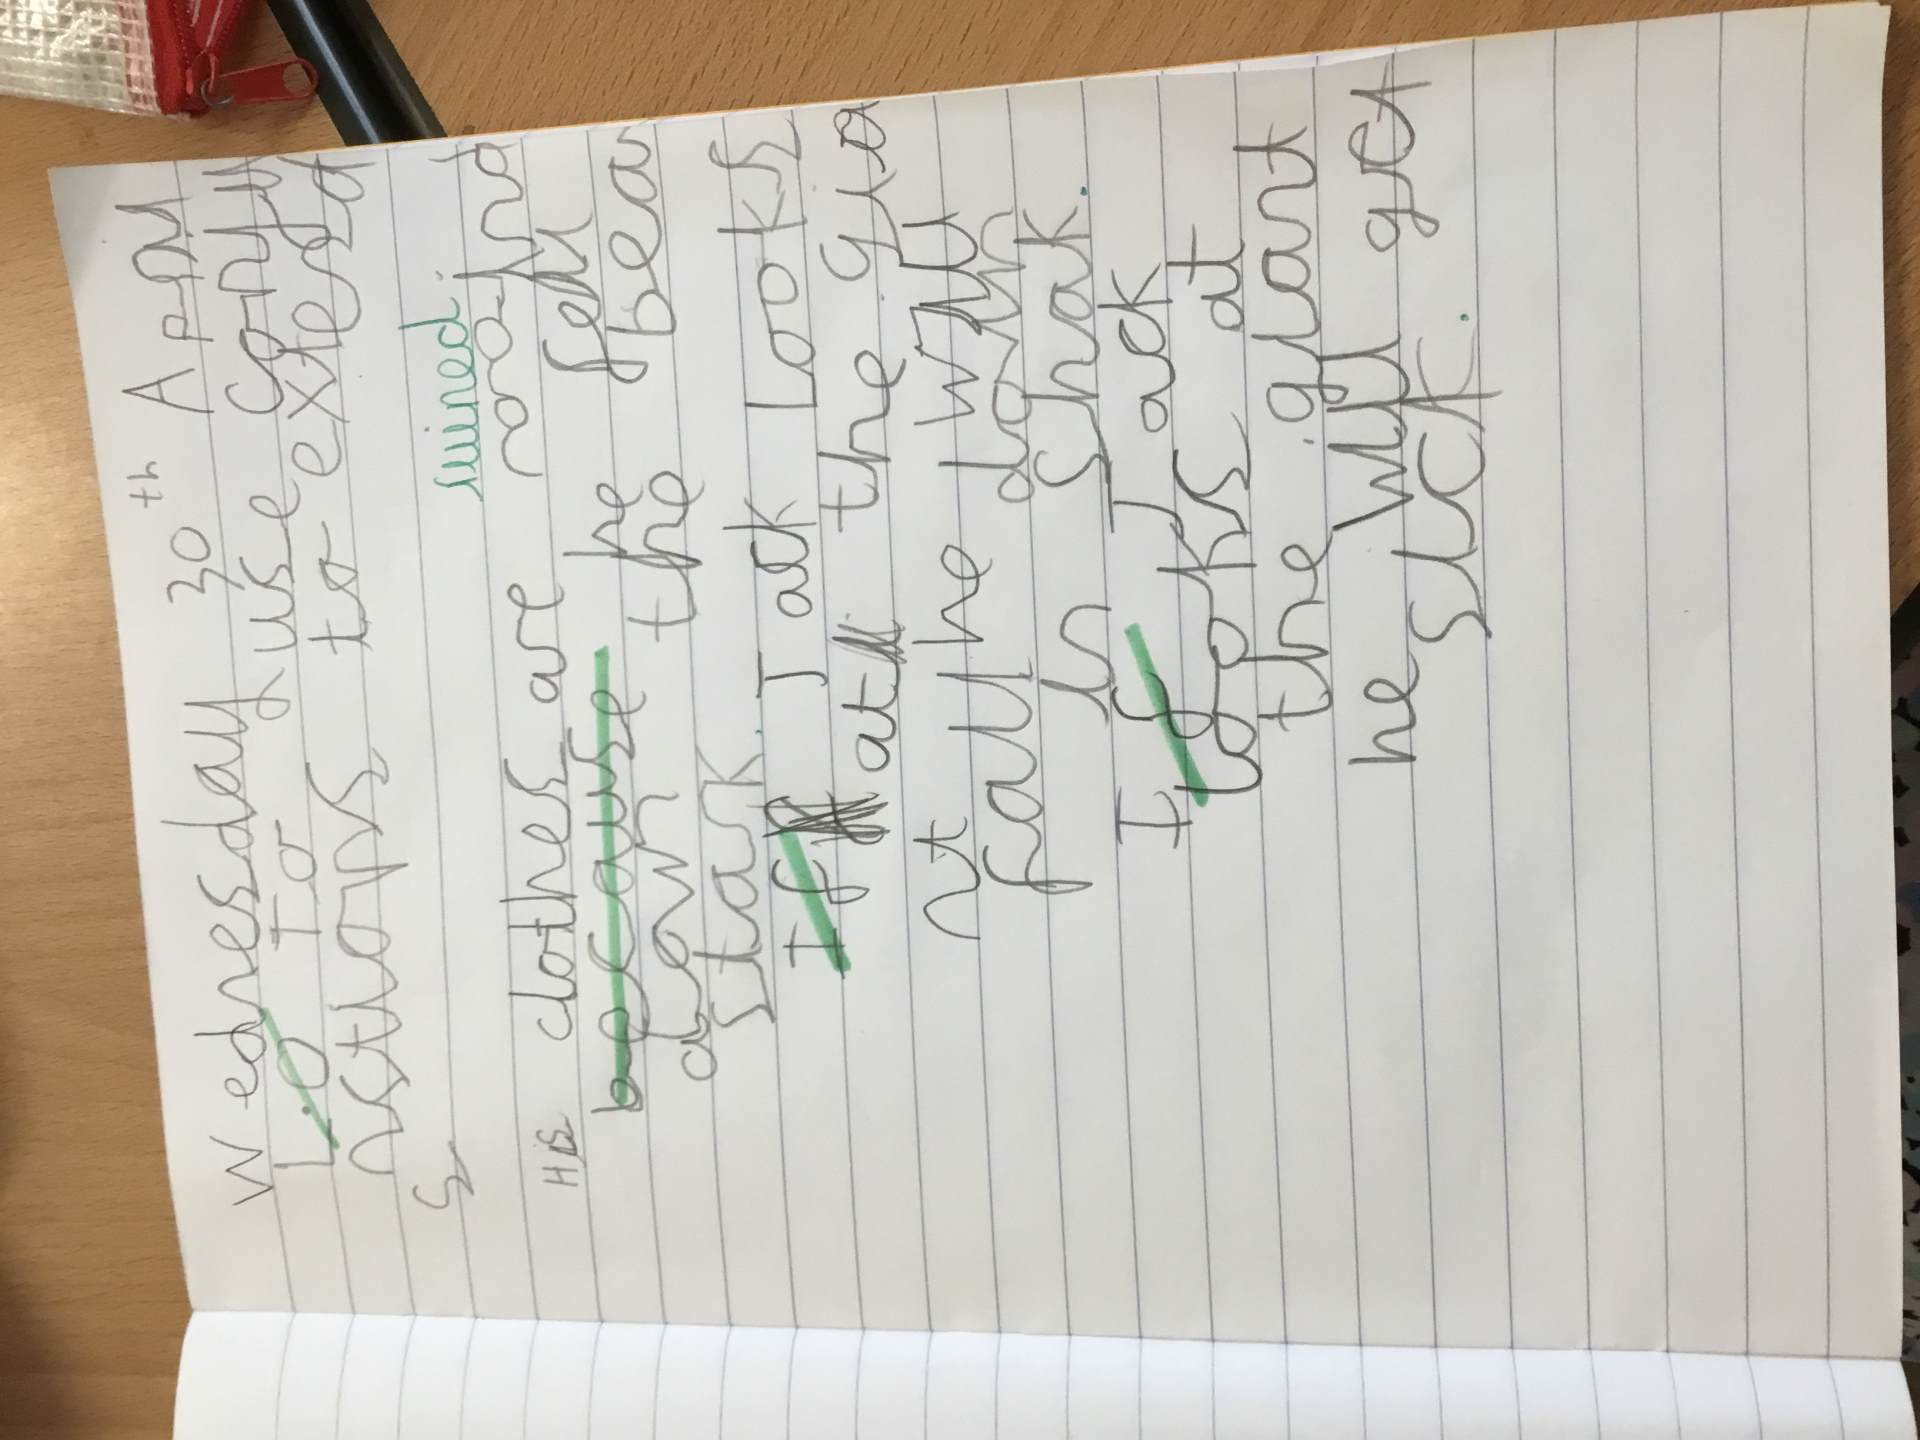 Wednesday 30th April
L.O To use conju
nctions to extend
S
ruined.
His clothes are roo-ind
because he fell
down the bean
stank.
If Jack Looks
at the gia
nt he will
fall down
in Shak.
If Jack
looks at
the giant
he will get
sick.